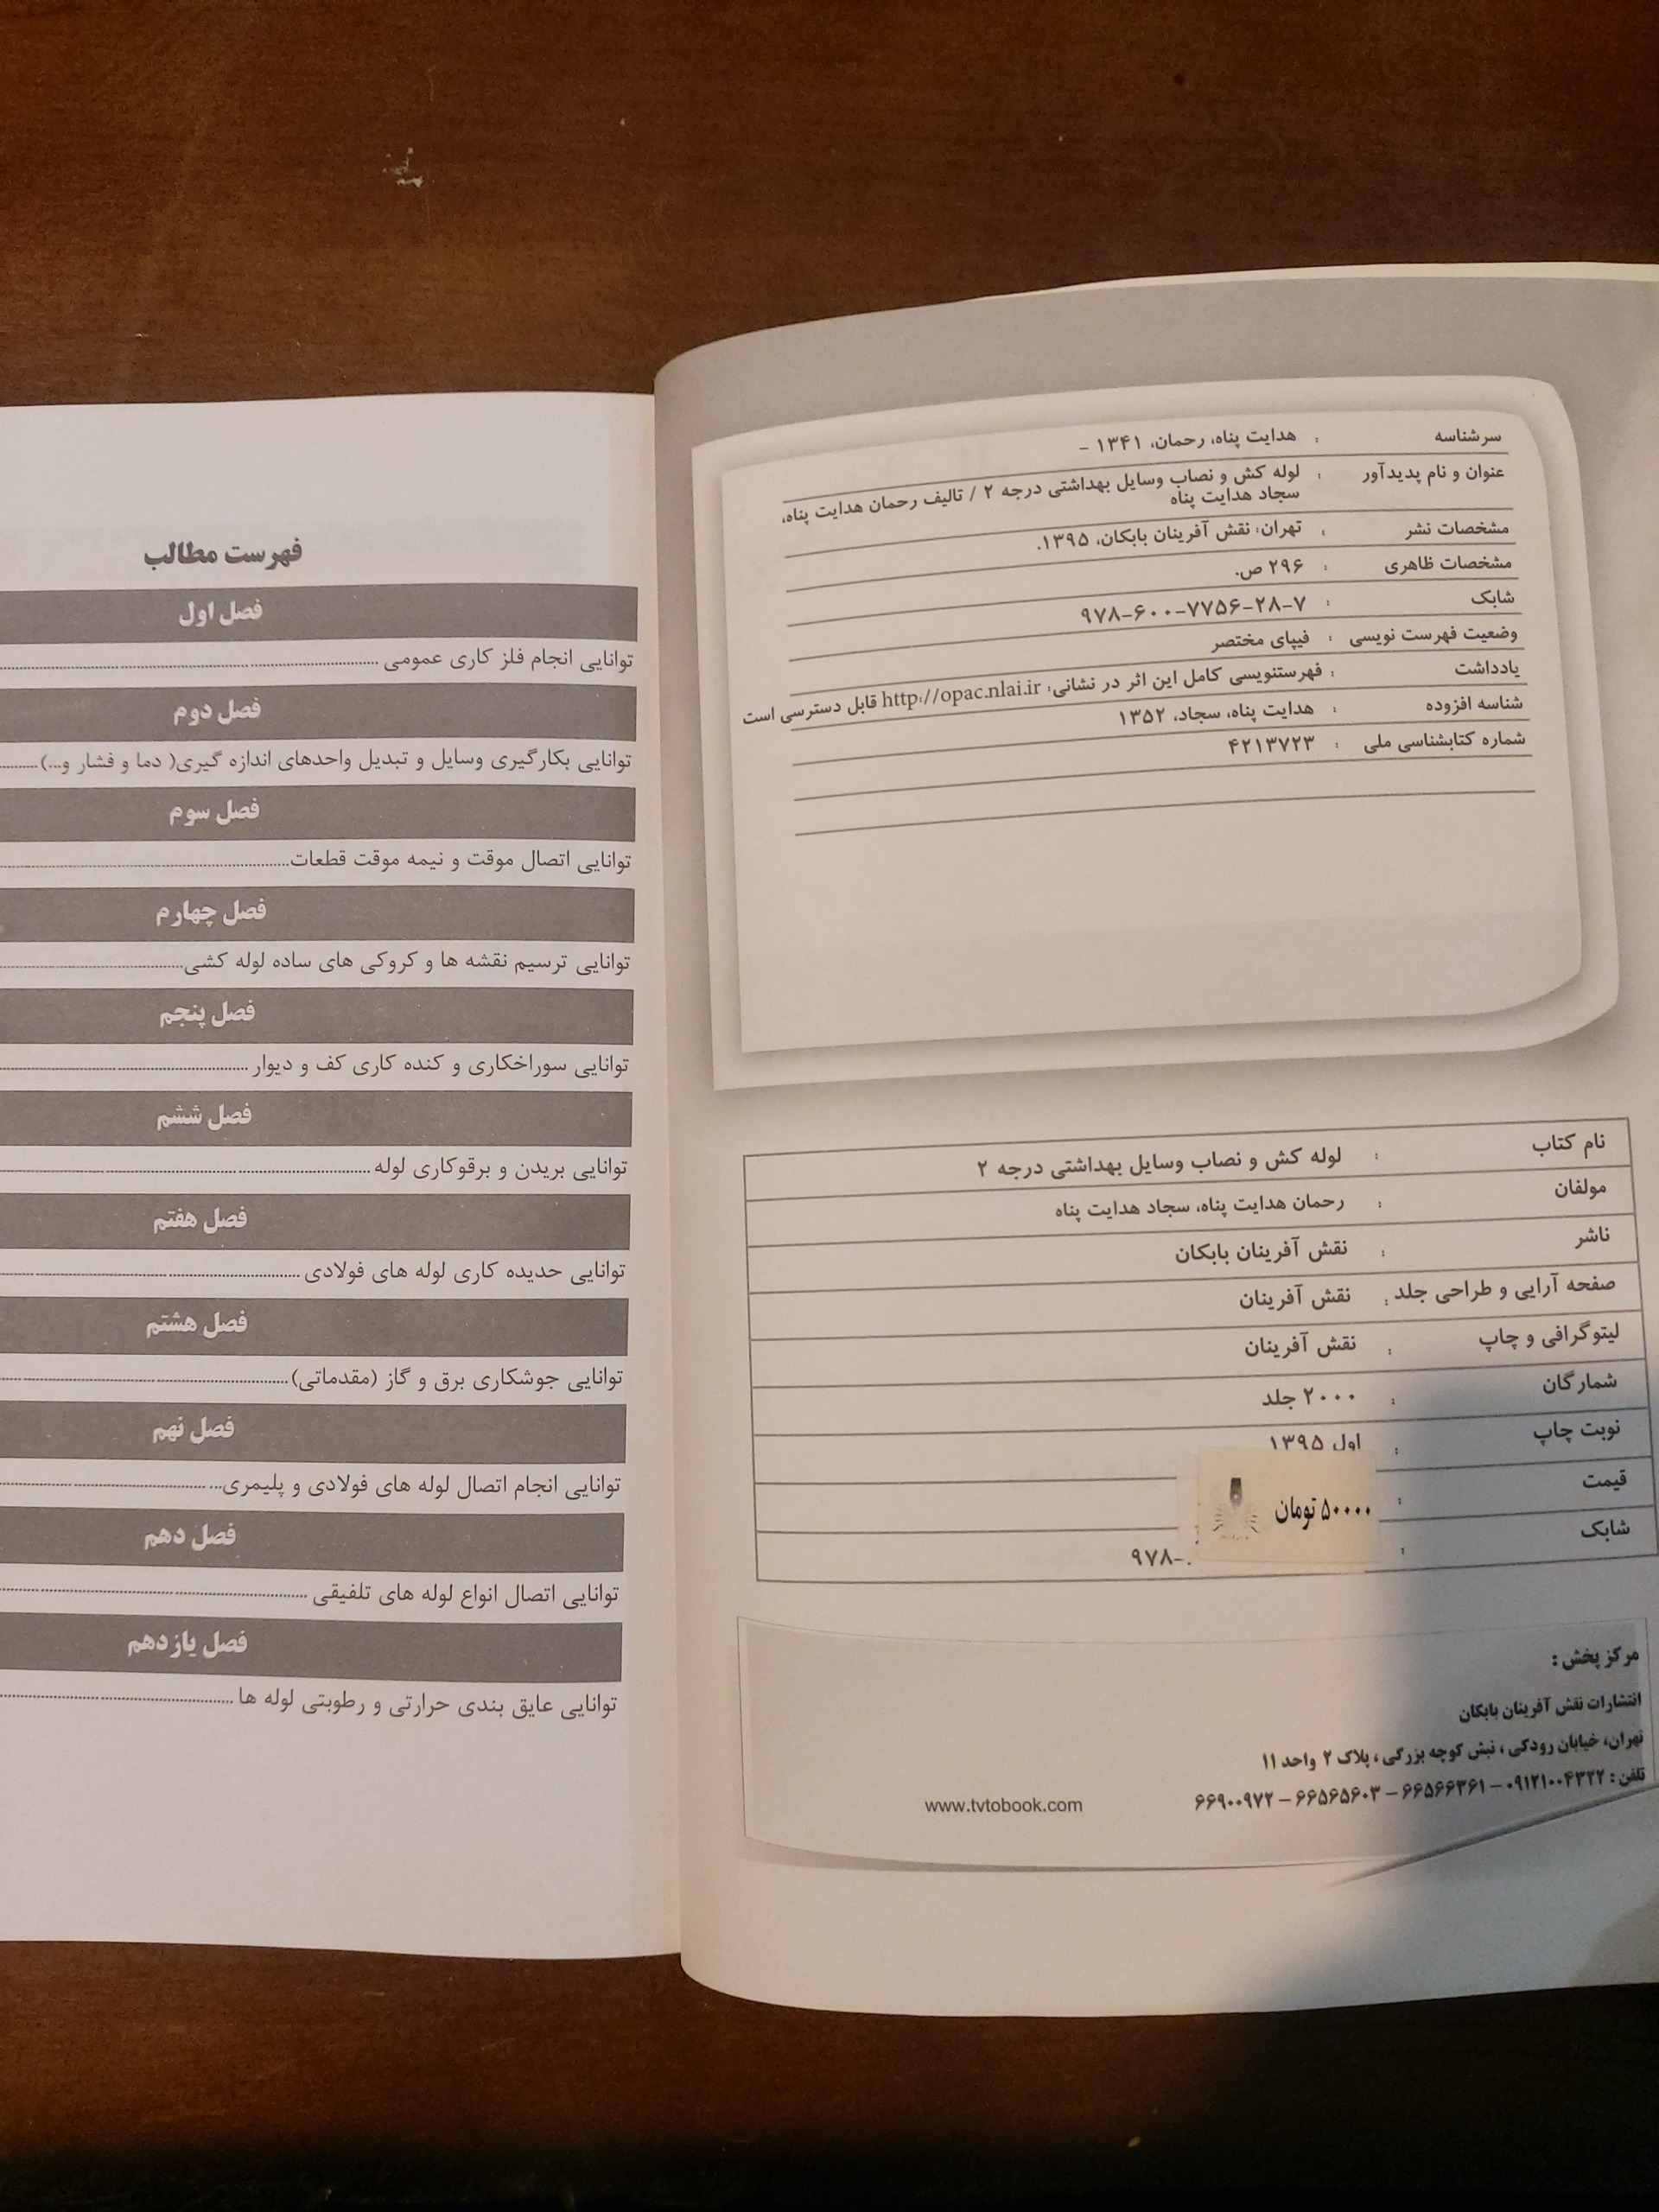 سرشناسه : هدایت پناه، رحمان، ۱۳۴۱ -
عنوان و نام پدیدآور : لوله کش و نصاب وسایل بهداشتی درجه ۲ / تالیف رحمان هدایت پناه،
سجاد هدایت پناه
مشخصات نشر : تهران: نقش آفرینان بابکان، ۱۳۹۵.
مشخصات ظاهری : ۲۹۶ ص.
شابک : ۹۷۸-۶۰۰-۷۷۵۶-۲۸-۷
وضعیت فهرست نویسی : فیپای مختصر
یادداشت : فهرستنویسی کامل این اثر در نشانی: http://opac.nlai.ir قابل دسترسی است
شناسه افزوده : هدایت پناه، سجاد، ۱۳۵۲
شماره کتابشناسی ملی : ۴۲۱۳۷۲۳
نام کتاب : لوله کش و نصاب وسایل بهداشتی درجه ۲
مولفان : رحمان هدایت پناه، سجاد هدایت پناه
ناشر : نقش آفرینان بابکان
صفحه آرایی و طراحی جلد : نقش آفرینان
لیتوگرافی و چاپ : نقش آفرینان
شمارگان : ۲۰۰۰ جلد
نوبت چاپ : اول ۱۳۹۵
قیمت : ۵۰۰۰۰ تومان
شابک : ۹۷۸-
مرکز پخش :
انتشارات نقش آفرینان بابکان
تهران، خیابان رودکی ، نبش کوچه بزرگی ، پلاک ۲ واحد ۱۱
تلفن : ۰۹۱۲۱۰۰۴۳۲۲ – ۶۶۵۶۶۳۶۱ – ۶۶۵۶۵۶۰۳ – ۶۶۹۰۰۹۷۲
www.tvtobook.com
فهرست مطالب
فصل اول
توانایی انجام فلز کاری عمومی
فصل دوم
توانایی بکارگیری وسایل و تبدیل واحدهای اندازه گیری( دما و فشار و...)
فصل سوم
توانایی اتصال موقت و نیمه موقت قطعات
فصل چهارم
توانایی ترسیم نقشه ها و کروکی های ساده لوله کشی
فصل پنجم
توانایی سوراخکاری و کنده کاری کف و دیوار
فصل ششم
توانایی بریدن و برقوکاری لوله
فصل هفتم
توانایی حدیده کاری لوله های فولادی
فصل هشتم
توانایی جوشکاری برق و گاز (مقدماتی)
فصل نهم
توانایی انجام اتصال لوله های فولادی و پلیمری
فصل دهم
توانایی اتصال انواع لوله های تلفیقی
فصل یازدهم
توانایی عایق بندی حرارتی و رطوبتی لوله ها